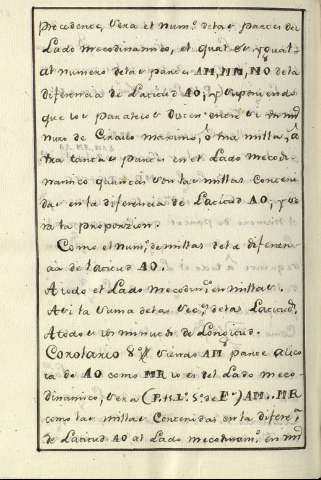 precedence, sera el num.º delas partes del
Lado mecodinamico, el qual es ygual
al numero delas partes AM, NM, NO dela
diferencia de Latitud AO; y suponiendo
que los paralelos disten entre si un min
nuto de Circulo maximo, o una milla,
tantas partes en el Lado Mecodi-
namico quantas son las millas Conteni-
das en la diferencia de Latitud AO, y se-
ra la proporzion.
Como el num.º de millas dela diferen-
cia de Latitud AO.
A todo el Lado mecodin.º en millas.
Asi la suma delas Sec.s delas Latitud.s
A todos los minutos de Longitud.
Corolario 8.º Siendo AM parte alico
ta de AO como MR lo es del Lado meco-
dinamico, sera AM. MR
como las millas Contenidas en la difer.ª
de Latitud AO al Lado mecodinam.º en mil